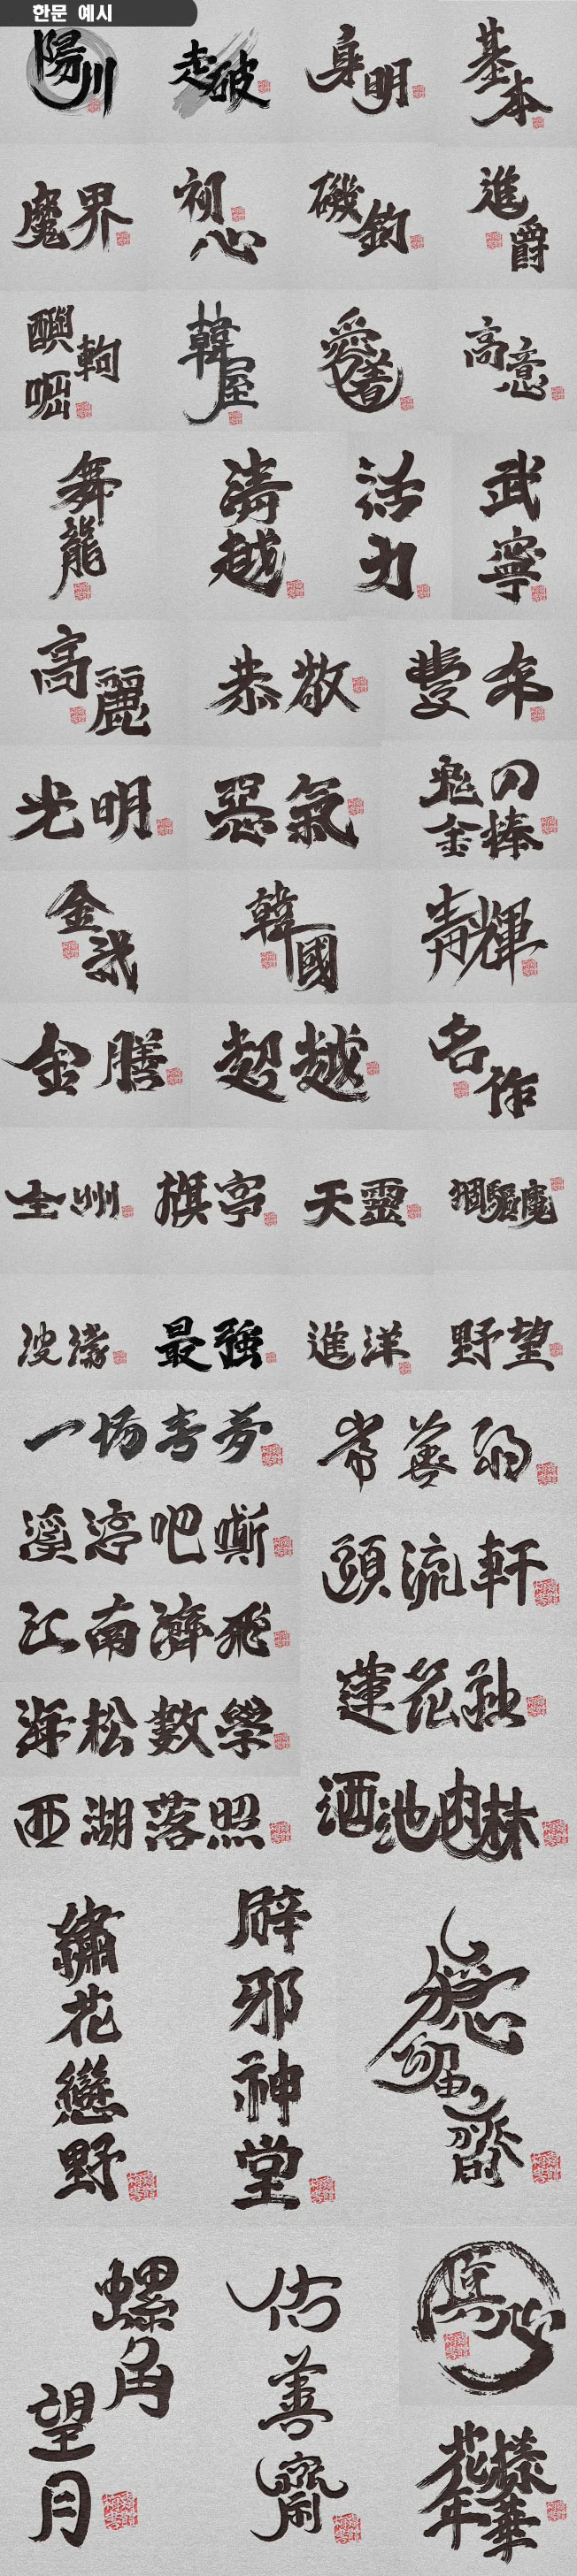 한문 예시
陽川
走破
身明
基本
魔界
初心
磯釣
進爵
韓屋
愛着
高意
舞龍
淸越
活力
武寧
高麗
恭敬
豊年
光明
惡氣
鬼の金棒
金
韓國
靑輝
金膳
超越
名作
全州
旗亭
天靈
魔
波濤
最強
進洋
野望
一场春夢
常善
溪渟吧嘶
頭流軒
江南濟飛
蓮花
海松數學
西湖落照
酒池肉林
繡花戀野
辟邪神堂
螺角望月
佑善齋
匠心
花樣年華